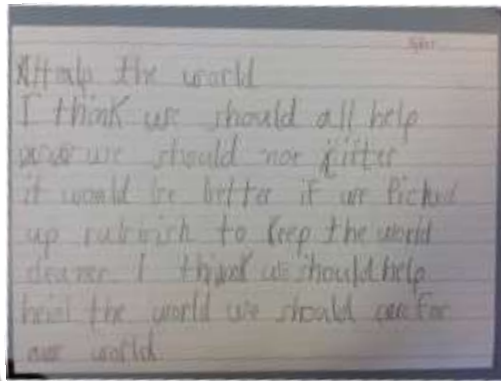 the world
I think we should all help
we should not litter
it would be better if we Picked
up rubbish to keep the world
cleaner I think we should help
the world we should care for
our world